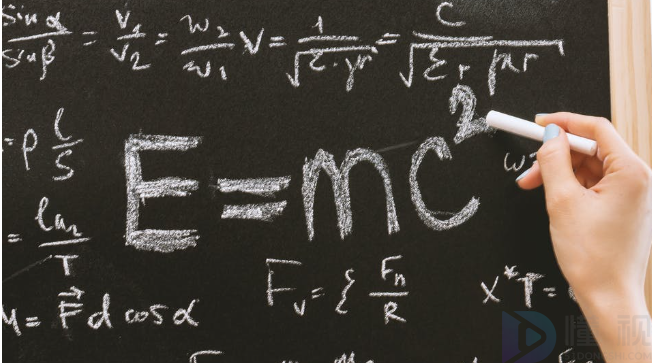 sinα/sinβ = v₁/v₂ = w₂/w₁ V = 1/√(ε·μr) = C/√(εr μr)
= ρ l/S
E = mc²
w=
= ln₂/T
F_v = { F_n/R
X*T =
= F⃗ d cosα
懂视